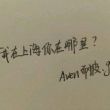 我在上海你在哪里?
Aven